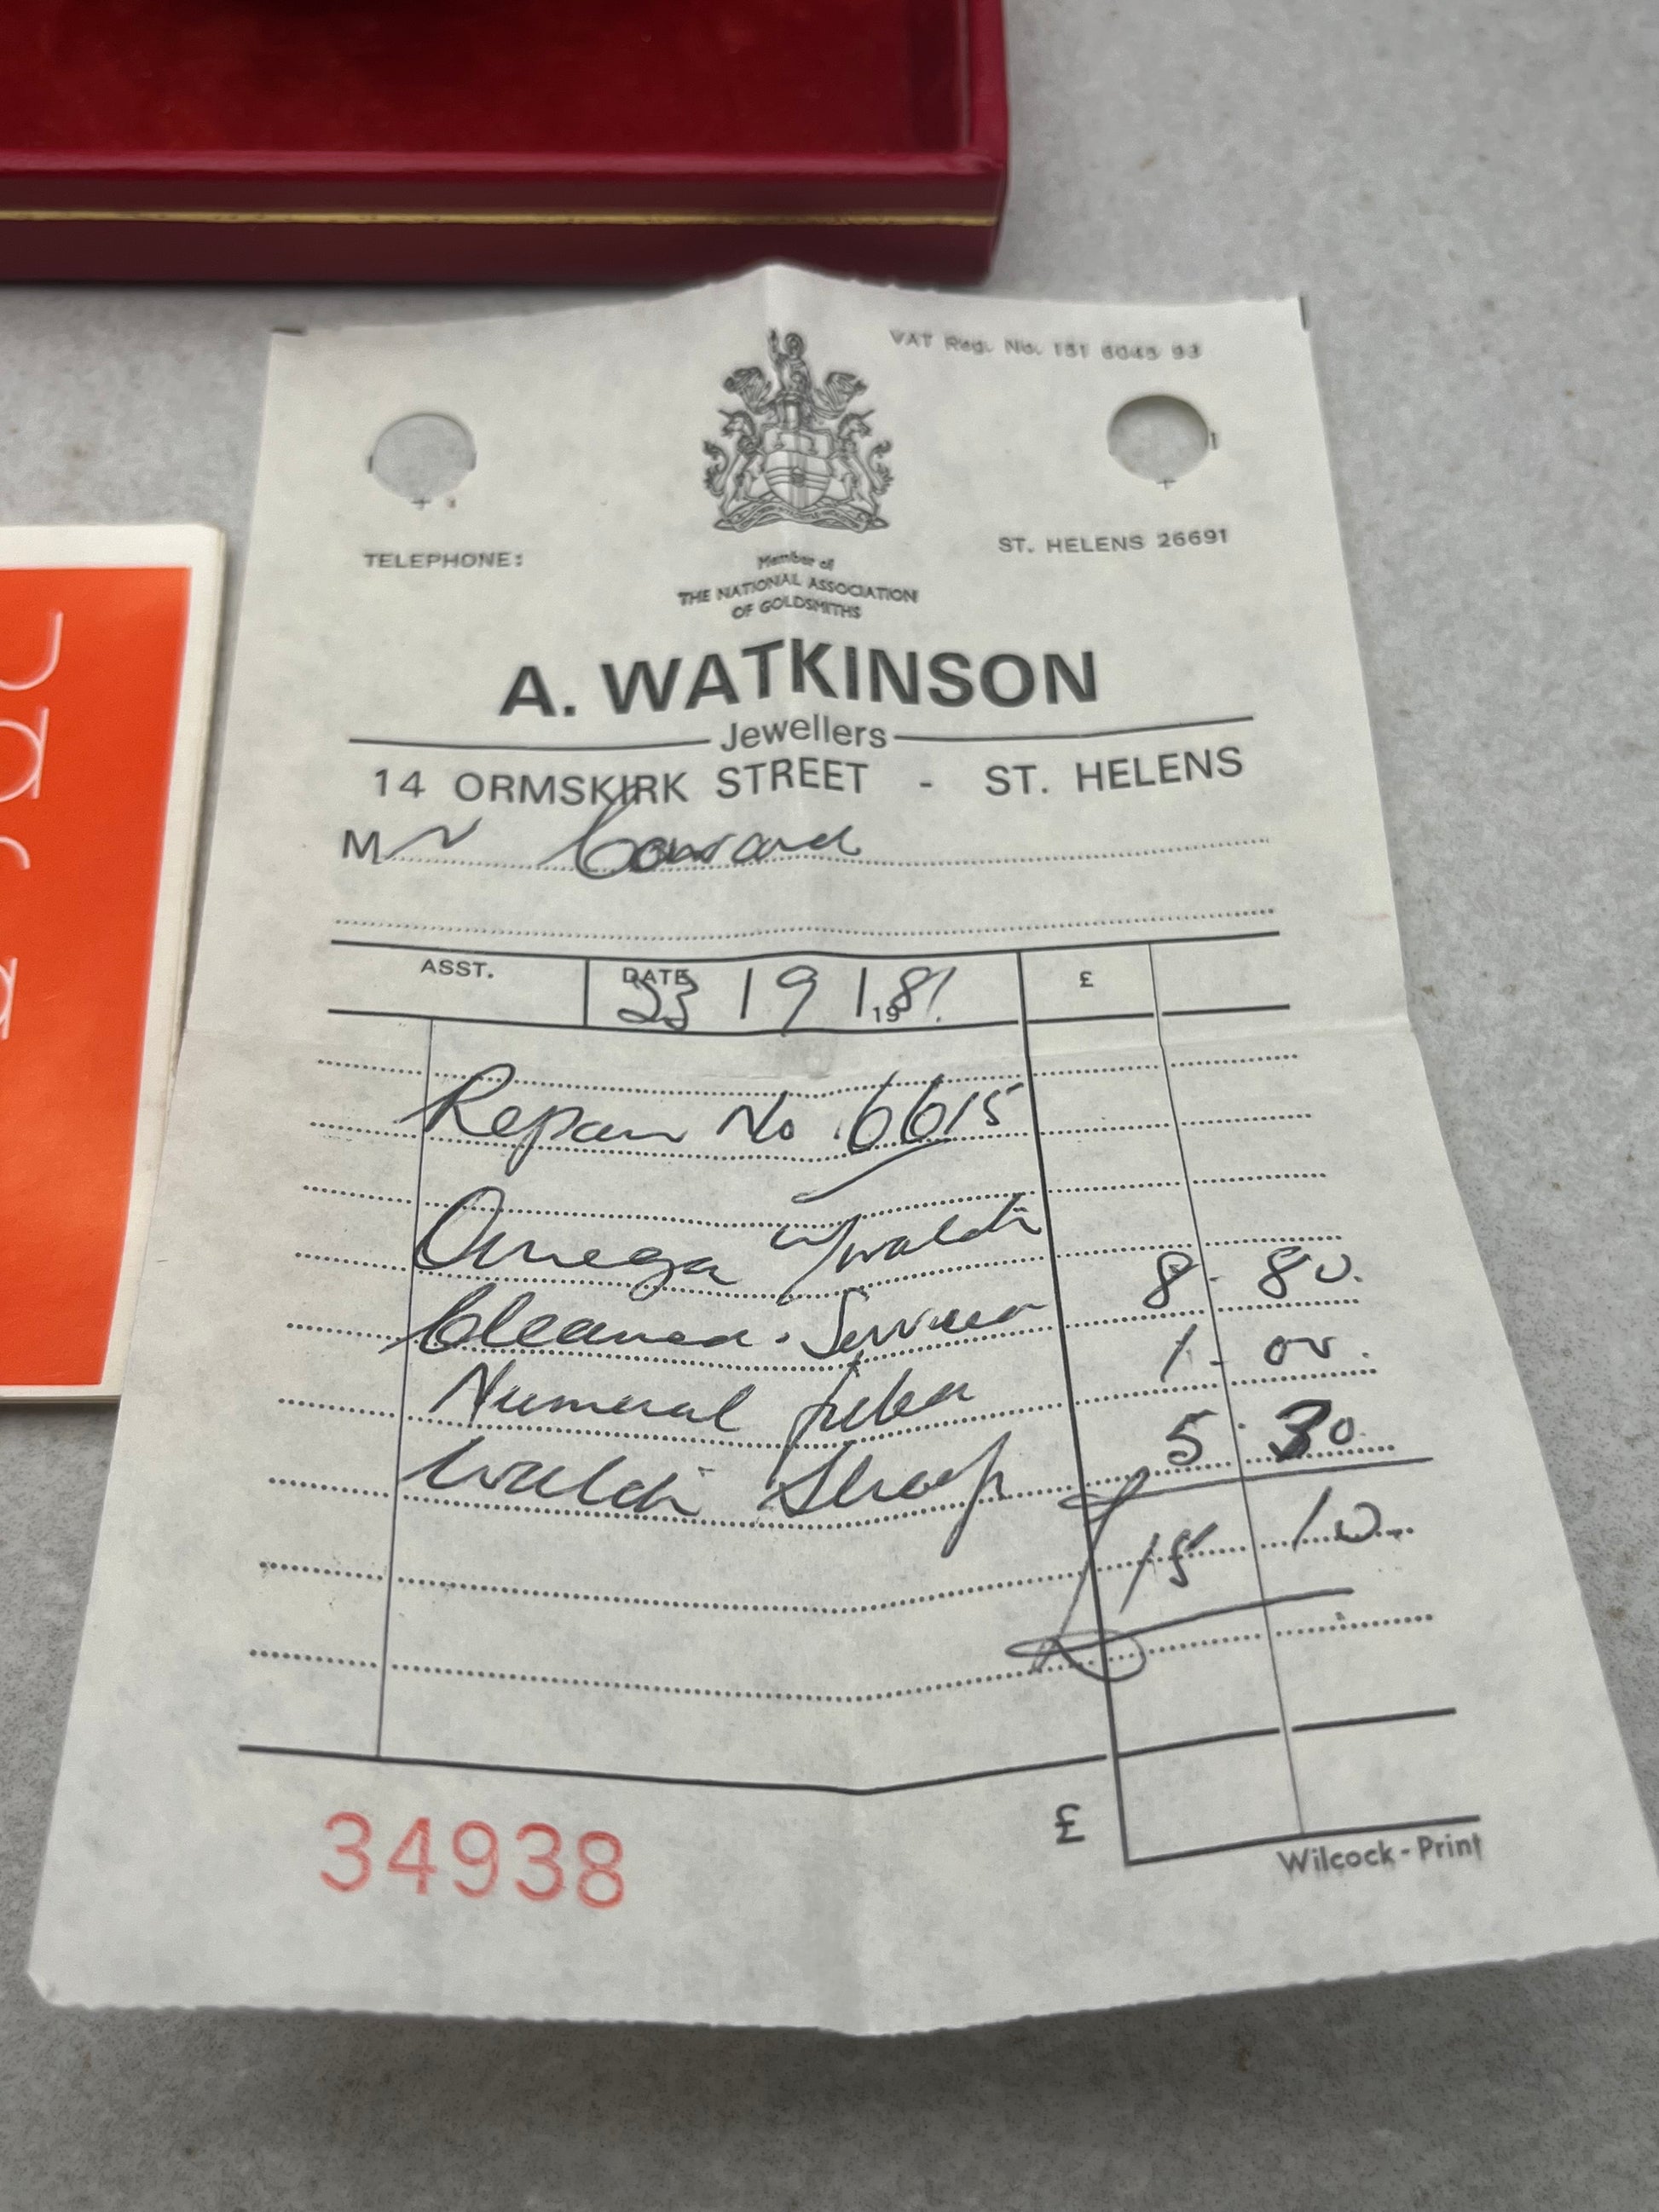 VAT Reg. No. 151 6045 93
TELEPHONE:
ST. HELENS 26691
Member of
THE NATIONAL ASSOCIATION
OF GOLDSMITHS
A. WATKINSON
Jewellers
14 ORMSKIRK STREET - ST. HELENS
Mr
ASST.
DATE 23 / 9 / 1981.
£
Repair No. 6615
Omega w/watch
Cleaned. Serviced 8 - 80.
Numeral 1 - 00.
Watch Strap 5 - 30.
£ 15 10
34938
£
Wilcock-Print